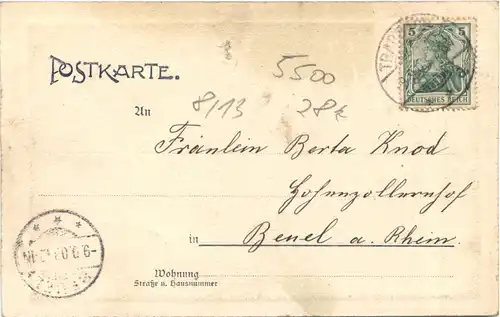 POSTKARTE.
5 5
DEUTSCHES REICH
5500
8/13
28€
An
Fräulein Berta Knod
Hohenzollernhof
in Beuel a. Rhein.
Wohnung
Straße u. Hausnummer